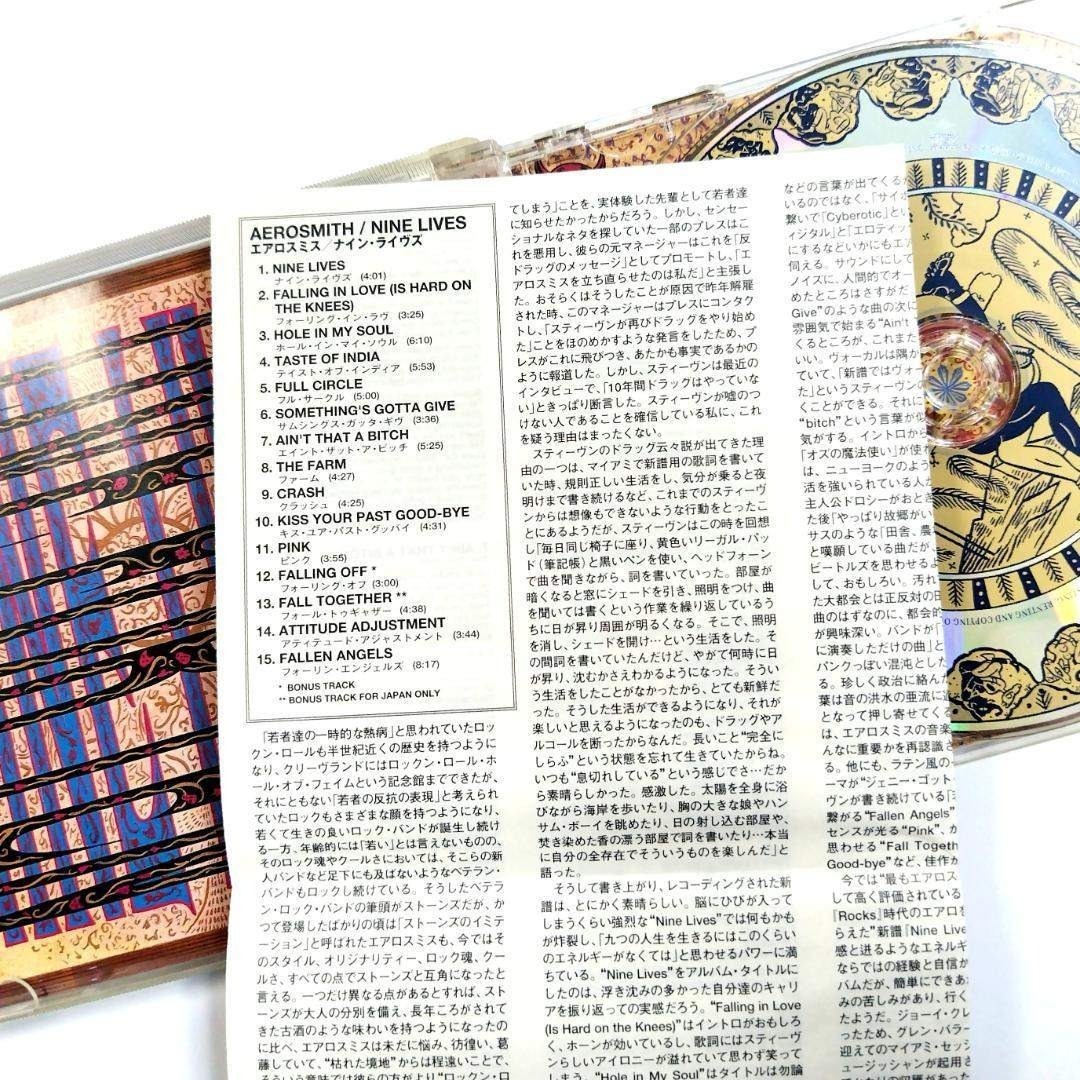 AEROSMITH / NINE LIVES
エアロスミス/ナイン・ライヴズ
1. NINE LIVES
ナイン・ライヴズ (4:01)
2. FALLING IN LOVE (IS HARD ON
THE KNEES)
フォーリング・イン・ラヴ (3:25)
3. HOLE IN MY SOUL
ホール・イン・マイ・ソウル (6:10)
4. TASTE OF INDIA
テイスト・オブ・インディア (5:53)
5. FULL CIRCLE
フル・サークル (5:00)
6. SOMETHING'S GOTTA GIVE
サムシングス・ガッタ・ギヴ (3:36)
7. AIN'T THAT A BITCH
エイント・ザット・ア・ビッチ (5:25)
8. THE FARM
ファーム (4:27)
9. CRASH
クラッシュ (4:25)
10. KISS YOUR PAST GOOD-BYE
キス・ユア・パスト・グッバイ (4:31)
11. PINK
ピンク (3:55)
12. FALLING OFF *
フォーリング・オフ (3:00)
13. FALL TOGETHER **
フォール・トゥギャザー (4:38)
14. ATTITUDE ADJUSTMENT
アティテュード・アジャストメント (3:44)
15. FALLEN ANGELS
フォーリン・エンジェルズ (8:17)
* BONUS TRACK
** BONUS TRACK FOR JAPAN ONLY
「若者達の一時的な熱病」と思われていたロッ
クン・ロールも半世紀近くの歴史を持つように
なり、クリーヴランドにはロックン・ロール・ホ
ール・オブ・フェイムという記念館までできたが、
それにともない「若者の反抗の表現」と考えられ
ていたロックもさまざまな顔を持つようになり、
若くて生きの良いロック・バンドが誕生し続け
る一方、年齢的には「若い」とは言えないものの、
そのロック魂やクールさにおいては、そこらの新
人バンドなど足下にも及ばないようなベテラン・
バンドもロックし続けている。そうしたベテラ
ン・ロック・バンドの筆頭がストーンズだが、か
つて登場したばかりの頃は「ストーンズのイミテ
ーション」と呼ばれたエアロスミスも、今ではそ
のスタイル、オリジナリティー、ロック魂、クー
ルさ、すべての点でストーンズと互角になったと
言える。一つだけ異なる点があるとすれば、スト
ーンズが大人の分別を備え、長年ころがされて
きた古酒のような味わいを持つようになったの
に比べ、エアロスミスは未だに悩み、彷徨い、葛
藤していて、“枯れた境地”からは程遠いことで、
てしまう」ことを、実体験した先輩として若者達
に知らせたかったからだろう。しかし、センセー
ショナルなネタを探していた一部のプレスはこ
れを悪用し、彼らの元マネージャーはこれを「反
ドラッグのメッセージ」としてプロモートし、「エ
アロスミスを立ち直らせたのは私だ」と主張し
た。おそらくはそうしたことが原因で昨年解雇
された時、このマネージャーはプレスにコンタク
トし、「スティーヴンが再びドラッグをやり始め
た」ことをほのめかすような発言をしたため、プ
レスがこれに飛びつき、あたかも事実であるかの
ように報道した。しかし、スティーヴンは最近の
インタビューで、「10年間ドラッグはやっていな
い」ときっぱり断言した。スティーヴンが嘘のつ
けない人であることを確信している私に、これ
を疑う理由はまったくない。
スティーヴンのドラッグ云々説が出てきた理
由の一つは、マイアミで新譜用の歌詞を書いて
いた時、規則正しい生活をし、気分が乗ると夜
明けまで書き続けるなど、これまでのスティーヴ
ンからは想像もできないような行動をとったこ
とにあるようだが、スティーヴンはこの時を回想
し「毎日同じ椅子に座り、黄色いリーガル・パッ
ド(筆記帳)と黒いペンを使い、ヘッドフォーン
で曲を聞きながら、詞を書いていった。部屋が
暗くなると窓にシェードを引き、照明をつけ、曲
を聞いては書くという作業を繰り返しているう
ちに日が昇り周囲が明るくなる。そこで、照明
を消し、シェードを開け…という生活をした。そ
の間詞を書いていたんだけど、やがて何時に日
が昇り、沈むかさえわかるようになった。そうい
う生活をしたことがなかったから、とても新鮮だ
った。そうした生活ができるようになり、それが
楽しいと思えるようになったのも、ドラッグやア
ルコールを断ったからなんだ。長いこと“完全に
しらふ”という状態を忘れて生きていたからね。
いつも“息切れしている”という感じでさ…だか
ら素晴らしかった。感激した。太陽を全身に浴
びながら海岸を歩いたり、胸の大きな娘やハン
サム・ボーイを眺めたり、日の射し込む部屋や、
焚き染めた香の漂う部屋で詞を書いたり…本当
に自分の全存在でそういうものを楽しんだ」と
語った。
そうして書き上がり、レコーディングされた新
譜は、とにかく素晴らしい。脳にひびが入って
しまうくらい強烈な“Nine Lives”では何もかも
が炸裂し、「九つの人生を生きるにはこのくらい
のエネルギーがなくては」と思わせるパワーに満
ちている。“Nine Lives”をアルバム・タイトルに
したのは、浮き沈みの多かった自分達のキャリ
アを振り返っての実感だろう。“Falling in Love
(Is Hard on the Knees)”はイントロがおもしろ
く、ホーンが効いているし、歌詞にはスティーヴ
ンらしいアイロニーが溢れていて思わず笑って
しまう。“Hole in My Soul”はタイトルは勿論
などの言葉が出てくるが
いるのではなく、「サイボ
繋いで「Cyberotic」とい
ィジタル」と「エロティッ
にするなどいかにもエア
伺える。サウンドにして
ノイズに、人間的でオー
めたところはさすがだ
Give”のような曲の次に
雰囲気で始まる“Ain't
くるところが、これまた
いい。ヴォーカルは隅か
ていて、「新譜ではヴォー
た」というスティーヴンの
くことができる。それに
“bitch”という言葉が似
気がする。イントロから
「オズの魔法使い」が使わ
は、ニューヨークのよう
活を強いられている人が
主人公ドロシーがおとぎ
た後「やっぱり故郷がい
サスのような「田舎、農
と嘆願している曲だが、
ビートルズを思わせるよ
して、おもしろい。汚れ
た大都会とは正反対の田
曲のはずなのに、都会的
が興味深い。バンドが「
に演奏しただけの曲」と
パンクっぽい混沌とした
る。珍しく政治に絡んた
葉は音の洪水の亜流に近
となって押し寄せてくる
は、エアロスミスの音楽
んなに重要かを再認識さ
る。他にも、ラテン風の
ーマが“ジェニー・ゴット
ヴンが書き続けている「ミ
繋がる“Fallen Angels”
センスが光る“Pink”、か
思わせる“Fall Togeth
Good-bye”など、佳作が
今では“最もエアロス
して高く評価されている
『Rocks』時代のエアロを
らえた”新譜『Nine Live
感と迸るようなエネルギ
ならではの経験と自信か
バムだが、簡単にできあ
みの苦しみがあり、行く
たようだ。ジョーイ・クレ
ったため、グレン・バラー
迎えてのマイアミ・セッシ
ュージッシャンが起用さ
RENTING AND COPYING O